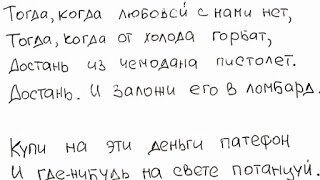 Тогда, когда любовей с нами нет,
Тогда, когда от холода горбат,
Достань из чемодана пистолет.
Достань. И заложи его в ломбард.
Купи на эти деньги патефон
И где-нибудь на свете потанцуй.